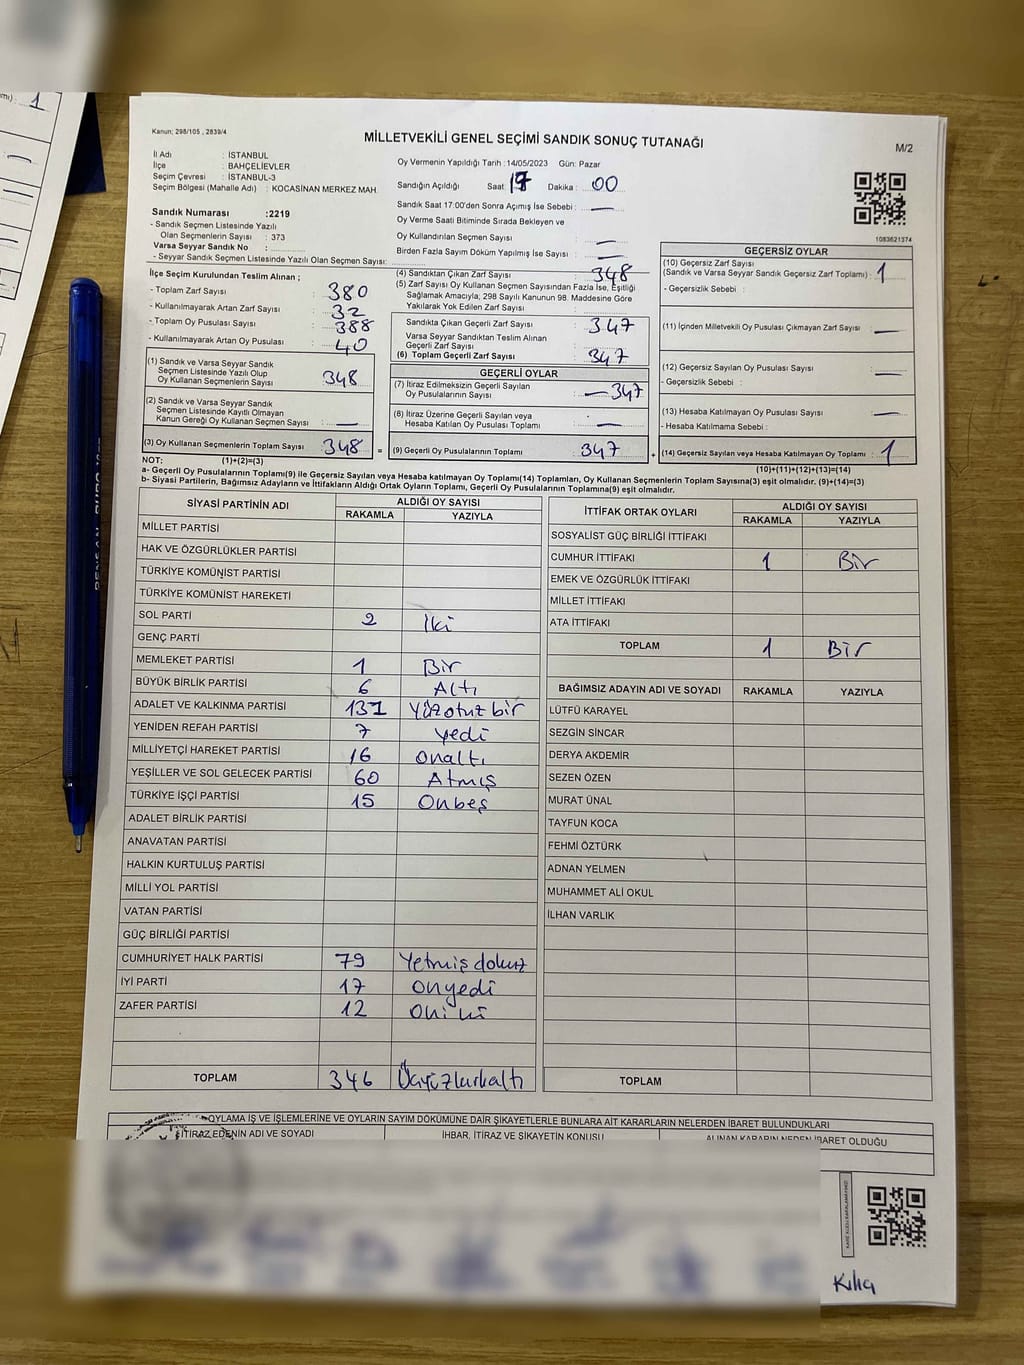 Kanun; 298/105 , 2839/4
MİLLETVEKİLİ GENEL SEÇİMİ SANDIK SONUÇ TUTANAĞI
M/2
İl Adı : İSTANBUL
İlçe : BAHÇELİEVLER
Seçim Çevresi : İSTANBUL-3
Seçim Bölgesi (Mahalle Adı) : KOCASİNAN MERKEZ MAH.
Oy Vermenin Yapıldığı Tarih :14/05/2023 Gün: Pazar
Sandığın Açıldığı Saat 17 Dakika : 00
Sandık Saat 17:00'den Sonra Açımış İse Sebebi : —
Oy Verme Saati Bitiminde Sırada Bekleyen ve
Oy Kullandırılan Seçmen Sayısı : —
Birden Fazla Sayım Döküm Yapılmış İse Sayısı : —
Sandık Numarası :2219
- Sandık Seçmen Listesinde Yazılı
Olan Seçmenlerin Sayısı : 373
Varsa Seyyar Sandık No :
- Seyyar Sandık Seçmen Listesinde Yazılı Olan Seçmen Sayısı:
1083621374
İlçe Seçim Kurulundan Teslim Alınan ;
- Toplam Zarf Sayısı : 380
- Kullanılmayarak Artan Zarf Sayısı : 32
- Toplam Oy Pusulası Sayısı : 388
- Kullanılmayarak Artan Oy Pusulası : 40
(1) Sandık ve Varsa Seyyar Sandık
Seçmen Listesinde Yazılı Olup
Oy Kullanan Seçmenlerin Sayısı : 348
(2) Sandık ve Varsa Seyyar Sandık
Seçmen Listesinde Kayıtlı Olmayan
Kanun Gereği Oy Kullanan Seçmen Sayısı : —
(3) Oy Kullanan Seçmenlerin Toplam Sayısı : 348 =
(4) Sandıktan Çıkan Zarf Sayısı : 348
(5) Zarf Sayısı Oy Kullanan Seçmen Sayısından Fazla İse, Eşitliği
Sağlamak Amacıyla; 298 Sayılı Kanunun 98. Maddesine Göre
Yakılarak Yok Edilen Zarf Sayısı :
Sandıkta Çıkan Geçerli Zarf Sayısı : 347
Varsa Seyyar Sandıktan Teslim Alınan
Geçerli Zarf Sayısı :
(6) Toplam Geçerli Zarf Sayısı : 347
GEÇERLİ OYLAR
(7) İtiraz Edilmeksizin Geçerli Sayılan
Oy Pusulalarının Sayısı : — 347
(8) İtiraz Üzerine Geçerli Sayılan veya
Hesaba Katılan Oy Pusulası Toplamı : —
(9) Geçerli Oy Pusulalarının Toplamı : 347 +
GEÇERSİZ OYLAR
(10) Geçersiz Zarf Sayısı
(Sandık ve Varsa Seyyar Sandık Geçersiz Zarf Toplamı) : 1
- Geçersizlik Sebebi :
(11) İçinden Milletvekili Oy Pusulası Çıkmayan Zarf Sayısı : —
(12) Geçersiz Sayılan Oy Pusulası Sayısı : —
- Geçersizlik Sebebi :
(13) Hesaba Katılmayan Oy Pusulası Sayısı : —
- Hesaba Katılmama Sebebi :
(14) Geçersiz Sayılan veya Hesaba Katılmayan Oy Toplamı : 1
NOT: (1)+(2)=(3) (10)+(11)+(12)+(13)=(14)
a- Geçerli Oy Pusulalarının Toplamı(9) ile Geçersiz Sayılan veya Hesaba katılmayan Oy Toplamı(14) Toplamları, Oy Kullanan Seçmenlerin Toplam Sayısına(3) eşit olmalıdır. (9)+(14)=(3)
b- Siyasi Partilerin, Bağımsız Adayların ve İttifakların Aldığı Ortak Oyların Toplamı, Geçerli Oy Pusulalarının Toplamına(9) eşit olmalıdır.
SİYASİ PARTİNİN ADI ALDIĞI OY SAYISI
RAKAMLA YAZIYLA
MİLLET PARTİSİ
HAK VE ÖZGÜRLÜKLER PARTİSİ
TÜRKİYE KOMÜNİST PARTİSİ
TÜRKİYE KOMÜNİST HAREKETİ
SOL PARTİ 2 İki
GENÇ PARTİ
MEMLEKET PARTİSİ 1 Bir
BÜYÜK BİRLİK PARTİSİ 6 Altı
ADALET VE KALKINMA PARTİSİ 131 Yüzotuz bir
YENİDEN REFAH PARTİSİ 7 Yedi
MİLLİYETÇİ HAREKET PARTİSİ 16 Onaltı
YEŞİLLER VE SOL GELECEK PARTİSİ 60 Atmış
TÜRKİYE İŞÇİ PARTİSİ 15 Onbeş
ADALET BİRLİK PARTİSİ
ANAVATAN PARTİSİ
HALKIN KURTULUŞ PARTİSİ
MİLLİ YOL PARTİSİ
VATAN PARTİSİ
GÜÇ BİRLİĞİ PARTİSİ
CUMHURİYET HALK PARTİSİ 79 Yetmiş dokuz
İYİ PARTİ 17 Onyedi
ZAFER PARTİSİ 12 Oniki
TOPLAM 346 Üçyüzkırkaltı
İTTİFAK ORTAK OYLARI ALDIĞI OY SAYISI
RAKAMLA YAZIYLA
SOSYALİST GÜÇ BİRLİĞİ İTTİFAKI
CUMHUR İTTİFAKI 1 Bir
EMEK VE ÖZGÜRLÜK İTTİFAKI
MİLLET İTTİFAKI
ATA İTTİFAKI
TOPLAM 1 Bir
BAĞIMSIZ ADAYIN ADI VE SOYADI RAKAMLA YAZIYLA
LÜTFÜ KARAYEL
SEZGİN SİNCAR
DERYA AKDEMİR
SEZEN ÖZEN
MURAT ÜNAL
TAYFUN KOCA
FEHMİ ÖZTÜRK
ADNAN YELMEN
MUHAMMET ALİ OKUL
İLHAN VARLIK
TOPLAM
OYLAMA İŞ VE İŞLEMLERİNE VE OYLARIN SAYIM DÖKÜMÜNE DAİR ŞİKAYETLERLE BUNLARA AİT KARARLARIN NELERDEN İBARET BULUNDUKLARI
İTİRAZ EDENİN ADI VE SOYADI İHBAR, İTİRAZ VE ŞİKAYETİN KONUSU ALINAN KARARIN NEDEN İBARET OLDUĞU